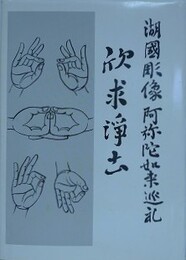 湖國彫像 阿弥陀如来巡礼
欣求淨土